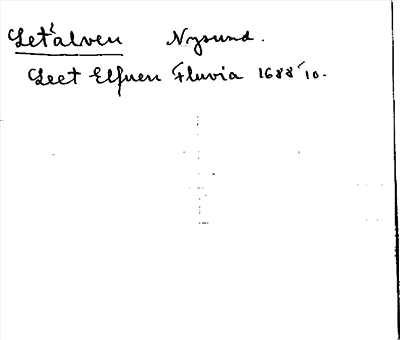 Let'älven Nysund.
Leet Elfuen Fluvia 1688 /10.